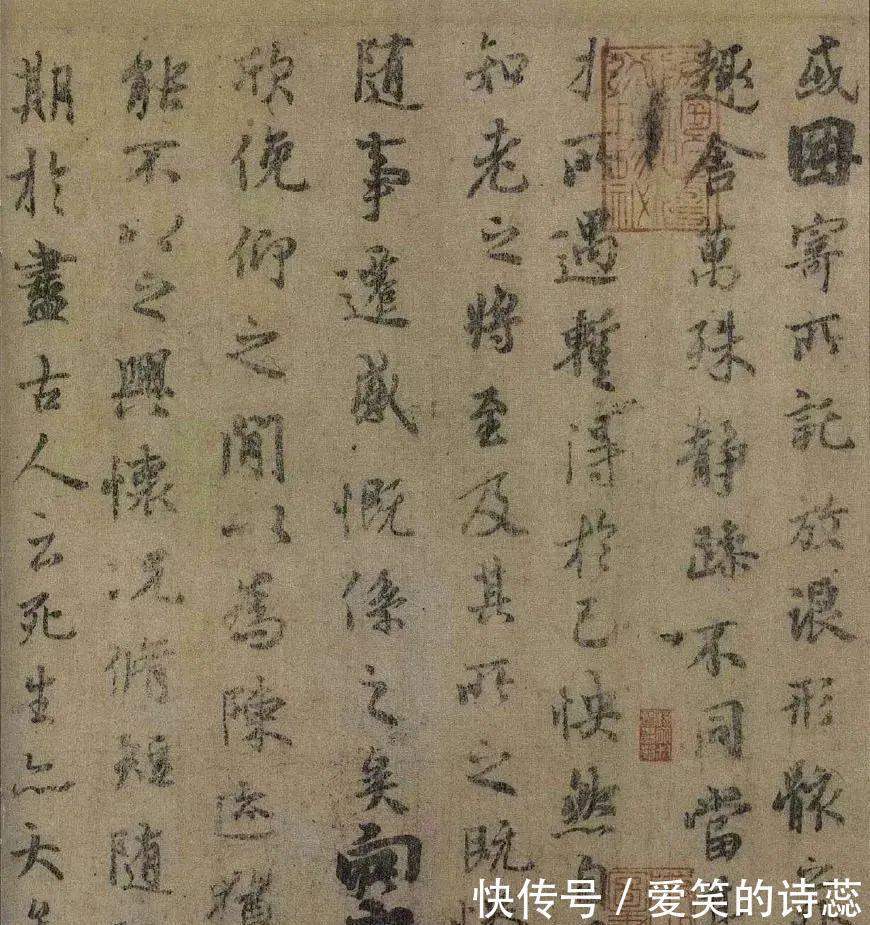 或因寄所託放浪形骸之
趣舍萬殊静躁不同當
於所遇蹔得於己怏然自
知老之將至及其所之既
随事遷感慨係之矣向
欣俛仰之閒以為陳迹猶
能不以之興懷况脩短随
期於盡古人云死生亦大矣
快传号 / 爱笑的诗蕊